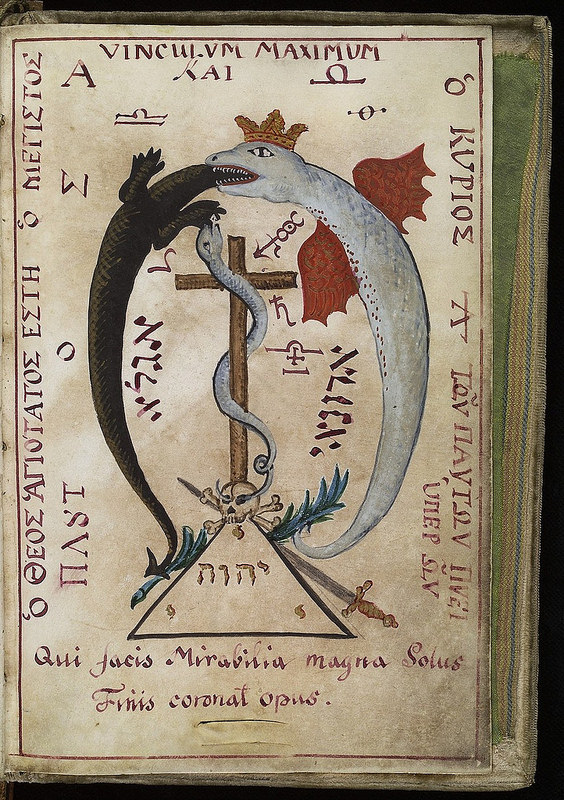 VINCULVM MAXIMUM
KAI
Ὁ ΘΕΟΣ ἉΓΙΟΤΑΤΟΣ ΕΣΤΗ Ὁ ΜΕΓΙΣΤΟΣ
Α
Σ
Ο
Ὁ ΚΥΡΙΟΣ
ΤΩΝ ΠΑΝΤΩΝ
ΥΠΕΡ ΩΝ
אגלא
אדוני
יהוה
Qui facis Mirabilia magna Solus
Finis coronat opus.